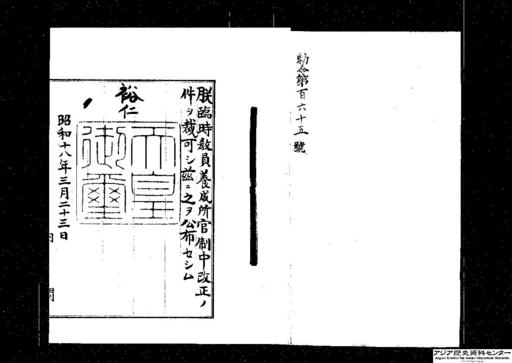 勅令第百六十五號
朕臨時教員養成所官制中改正ノ
件ヲ裁可シ茲ニ之ヲ公布セシム
裕仁
天皇
御璽
昭和十八年三月二十三日
内閣
アジア歴史資料センター
Japan Center for Asian Historical Records